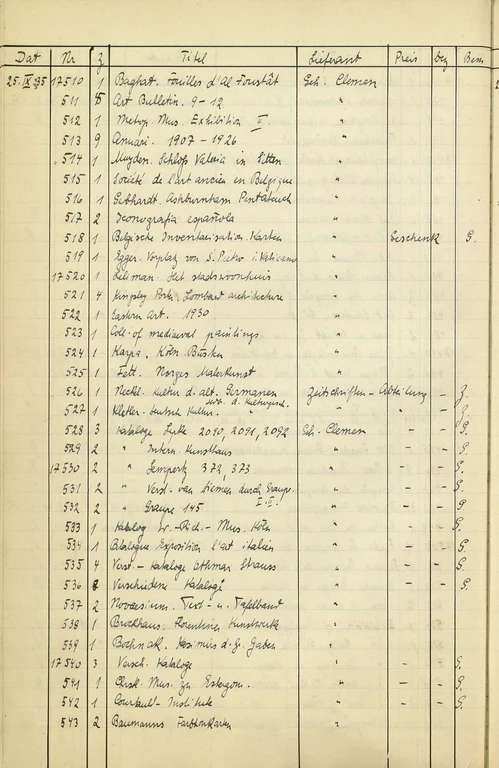 Dat Nr Z Titel Lieferant Preis bez Bem
25. IX 35 17510 1 Baghat. Fouilles d'Al Foustât Geh. Clemen
511 5 Art Bulletin. 9-12 "
512 1 Metrop. Mus. Exhibition II. "
513 9 Anuari. 1907-1926 "
514 1 Muyden. Schloß Valeria in Sitten "
515 1 Société de l'art ancien en Belgique "
516 1 Gebhardt. Ashburnham Pentateuch "
517 2 Iconografia española "
518 1 Belgische Inventarisation. Karten " Geschenk G.
519 1 Egger. Vorplatz von S. Pietro i. Vaticano "
17520 1 Het stadswoonhuis "
521 4 Kingsley Porter. Lombard architecture "
522 1 Eastern Art. 1930 "
523 1 Coll. of mediaeval paintings "
524 1 Karpa. Köln. Büsten "
525 1 Fett. Norges Malerkunst "
526 1 Neckel. Kultur d. alt. Germanen Zeitschriften - Abteilung - Z.
527 1 Kletler. deutsch. Kultur. " " - Z.
528 3 Kataloge Lepke 2090, 2091, 2092 Geh. Clemen - - G.
529 2 " Intern. Kunsthaus " - - G.
17530 2 " Lempertz 372, 373 " - - G.
531 2 " Verst. van Diemen durch Graupe. I-II. " - - G.
532 2 " Graupe 145 " - - G.
533 1 Katalog W.-Rich.-Mus. Köln " - - G.
534 1 Catalogue Exposition l'art italien " - - G.
535 4 Verst.-Kataloge Othmar Strauss " - - G.
536 8 Verschiedene Kataloge " - - G.
537 2 Novaesium. Text- u. Tafelband "
538 1 Brockhaus. Florentiner Kunstwerke "
539 1 Bochnak. Kasimirs d. G. Gaben "
17540 3 Versch. Kataloge " - - G.
541 1 Christl. Mus. zu Esztergom. " - - G.
542 1 Courtauld-Institute " - - G.
543 2 Baumanns Farbtonkarten "